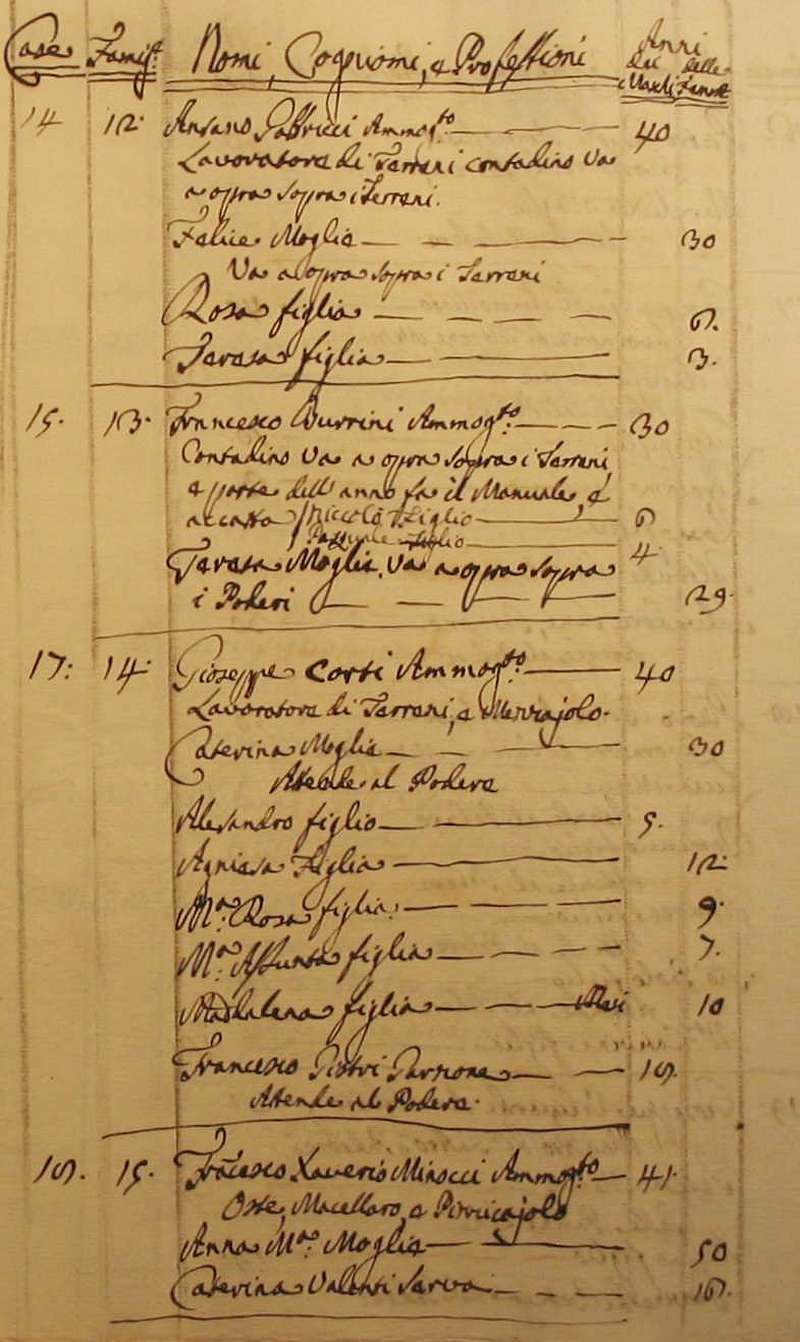 Case Famigl: Nomi, Cognomi, e Professioni Anni
dei delle
Maschi Femine
14 12. Ansano Fabbricci Ammog.to 40
Lavoratore di Terreni contadino Va
a opra sopra i Terreni.
Felice Moglie 30
Va a opra sopra i Terreni
Rosa figlia 6.
Teresa figlia 3.
15. 13. Francesco Burrini Ammog.to 30
Contadino Va a opra sopra i Terreni,
e parte dell'anno fa il Manuale, e
accatta Niccolò Figlio 6
Pasquale figlio 4
Teresa Moglie. Va a opra sopra
i Poderi 29.
17: 14. Giuseppe Corti Ammog.to 40
Lavoratore di Terreni, e Merciajolo.
Caterina Moglie 30
Atende al Podere
Alesandro figlio 5.
Agniesa Figlia 12.
M.a Rosa figlia 9.
M.a Assunta figlia 7.
Maddalena figlia Mesi 10
Francesco Pistri Garzone 19.
Atende al Podere.
19. 15. Francesco Xaverio Minocci Ammog.to 41.
Oste, Macellaro, e Pizzicajolo
Anna M.a Moglie 50
Caterina Valenti Serva 16.